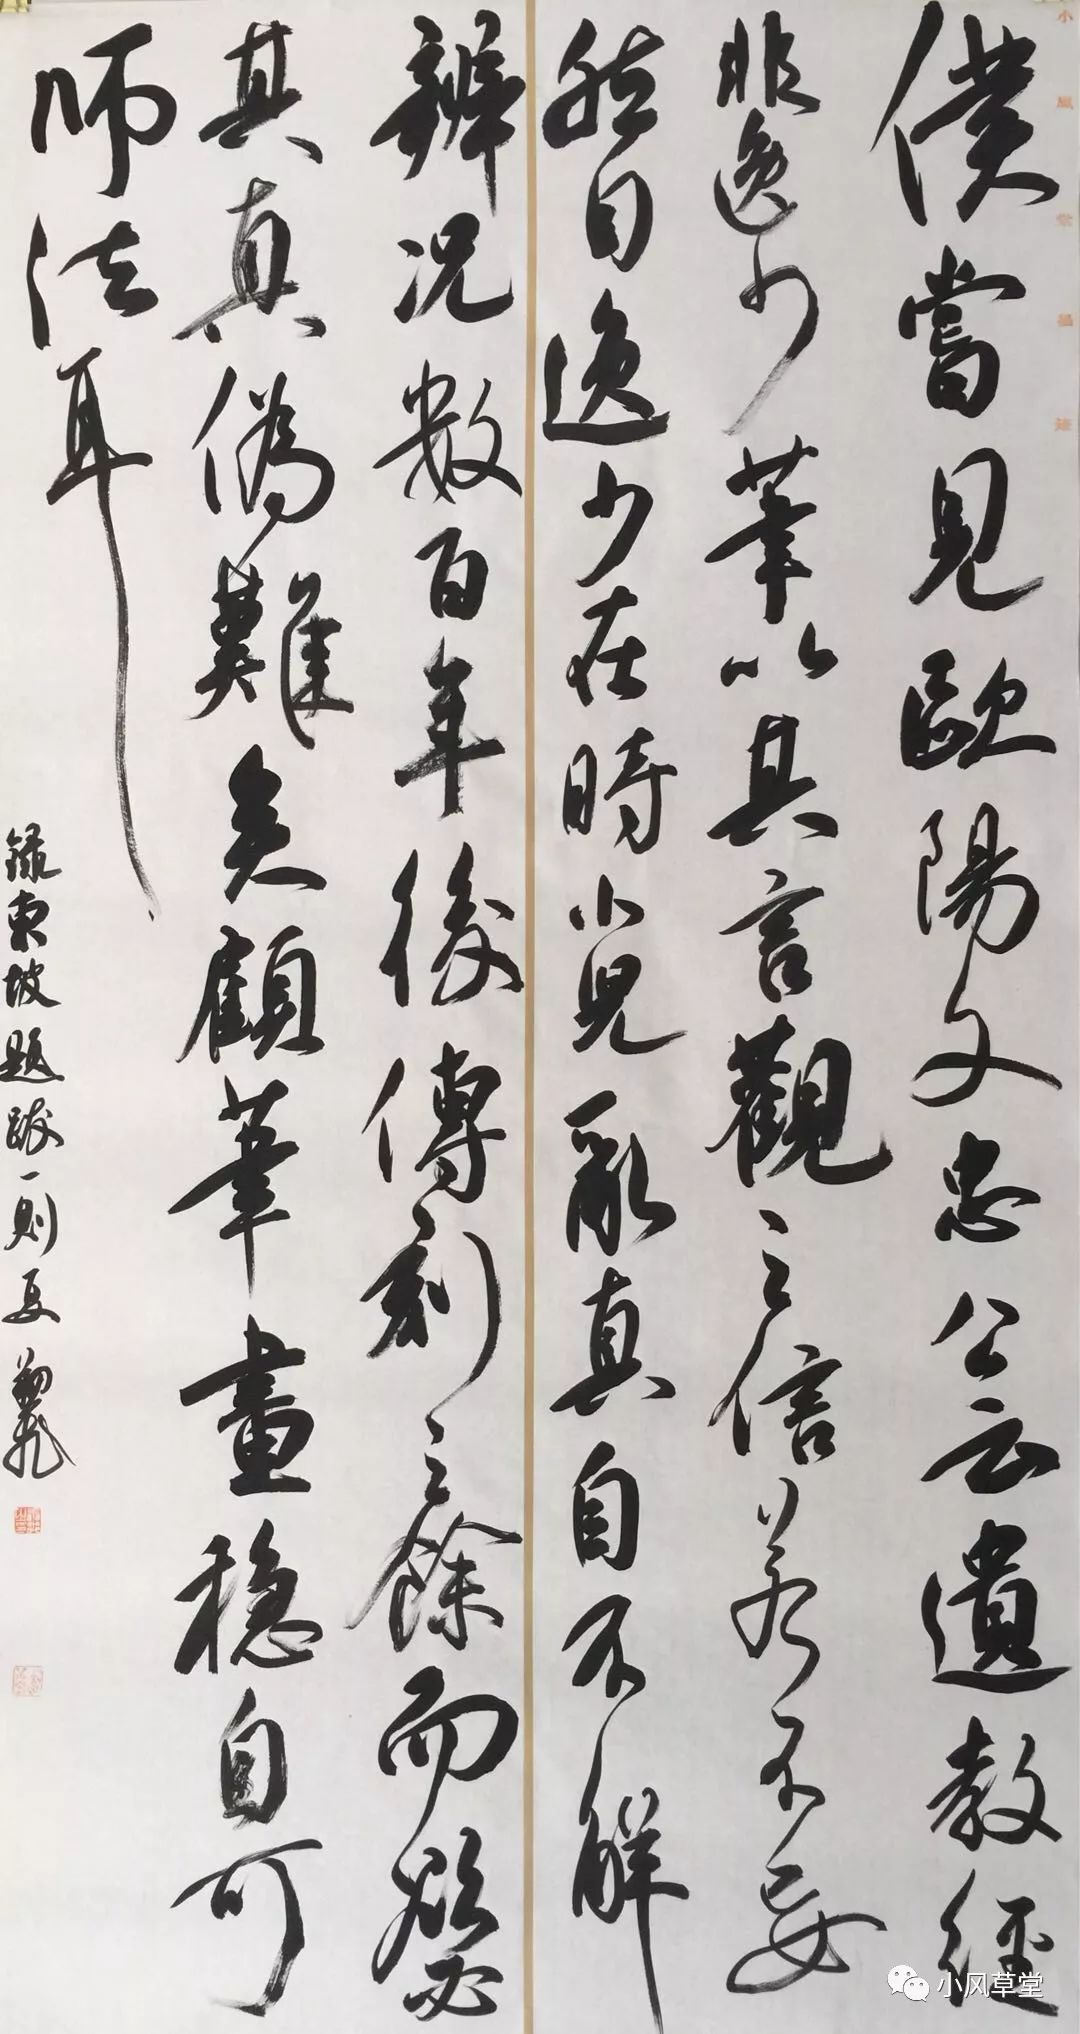 僕嘗見歐陽文忠公云遺教經
非逸少筆以其言觀之信若不妄
然自逸少在時小兒亂真自不解
辨況數百年後傳刻之餘而欲必
其真真偽難矣顧筆畫穩自可
師法耳
錄東坡題跋一則夏
小风草堂